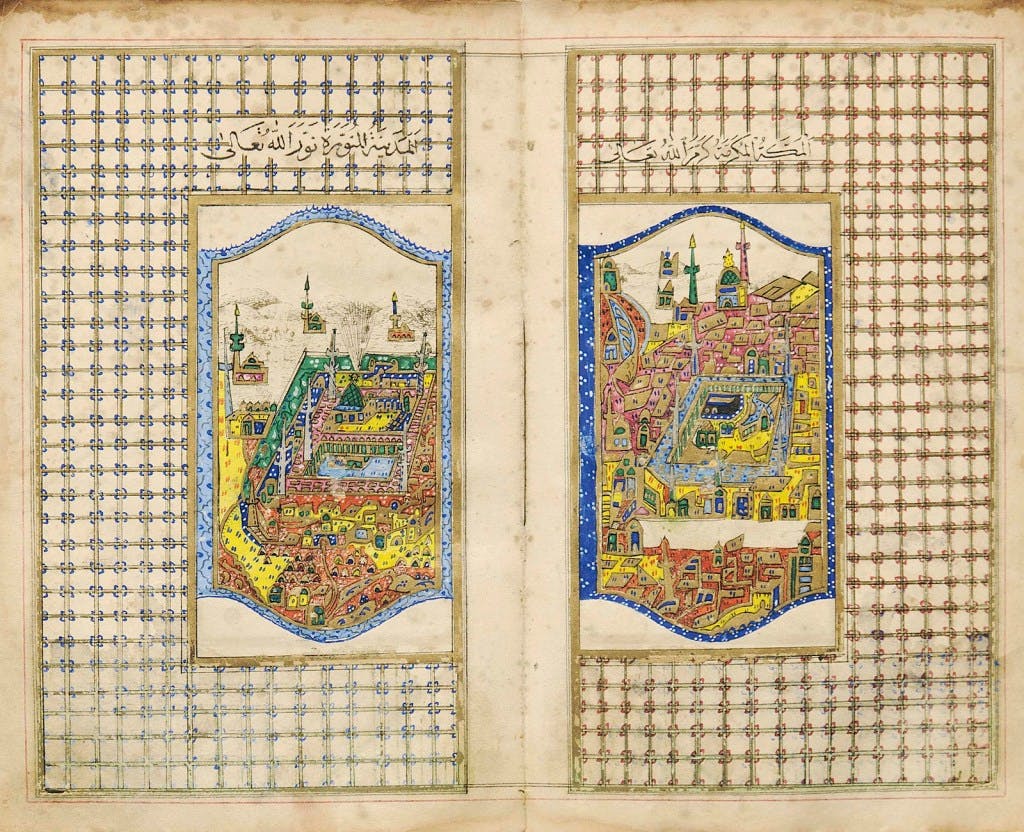 المكة المكرمة كرم الله تعالى
المدينة المنورة نور الله تعالى